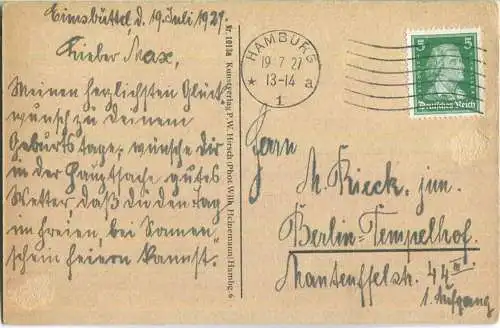 Eimsbüttel, d. 19. Juli 1927.
Lieber Max,
Meinen herzlichsten Glück-
wunsch zu Deinem
Geburtstage, wünsche dir
in der Hauptsache gutes
Wetter, daß du den Tag
im Freien, bei Sonnen-
schein feiern kannst.
Nr. 1013a Kunstverlag P.W. Hirsch (Phot. Wilh. Heinemann) Hambg. 6
HAMBURG
19.7.27
13-14 a
* 1
5 5
Deutsches Reich
Herrn
M. Rieck. jun.
Berlin-Tempelhof.
Manteuffelstr. 44 III
1. Aufgang